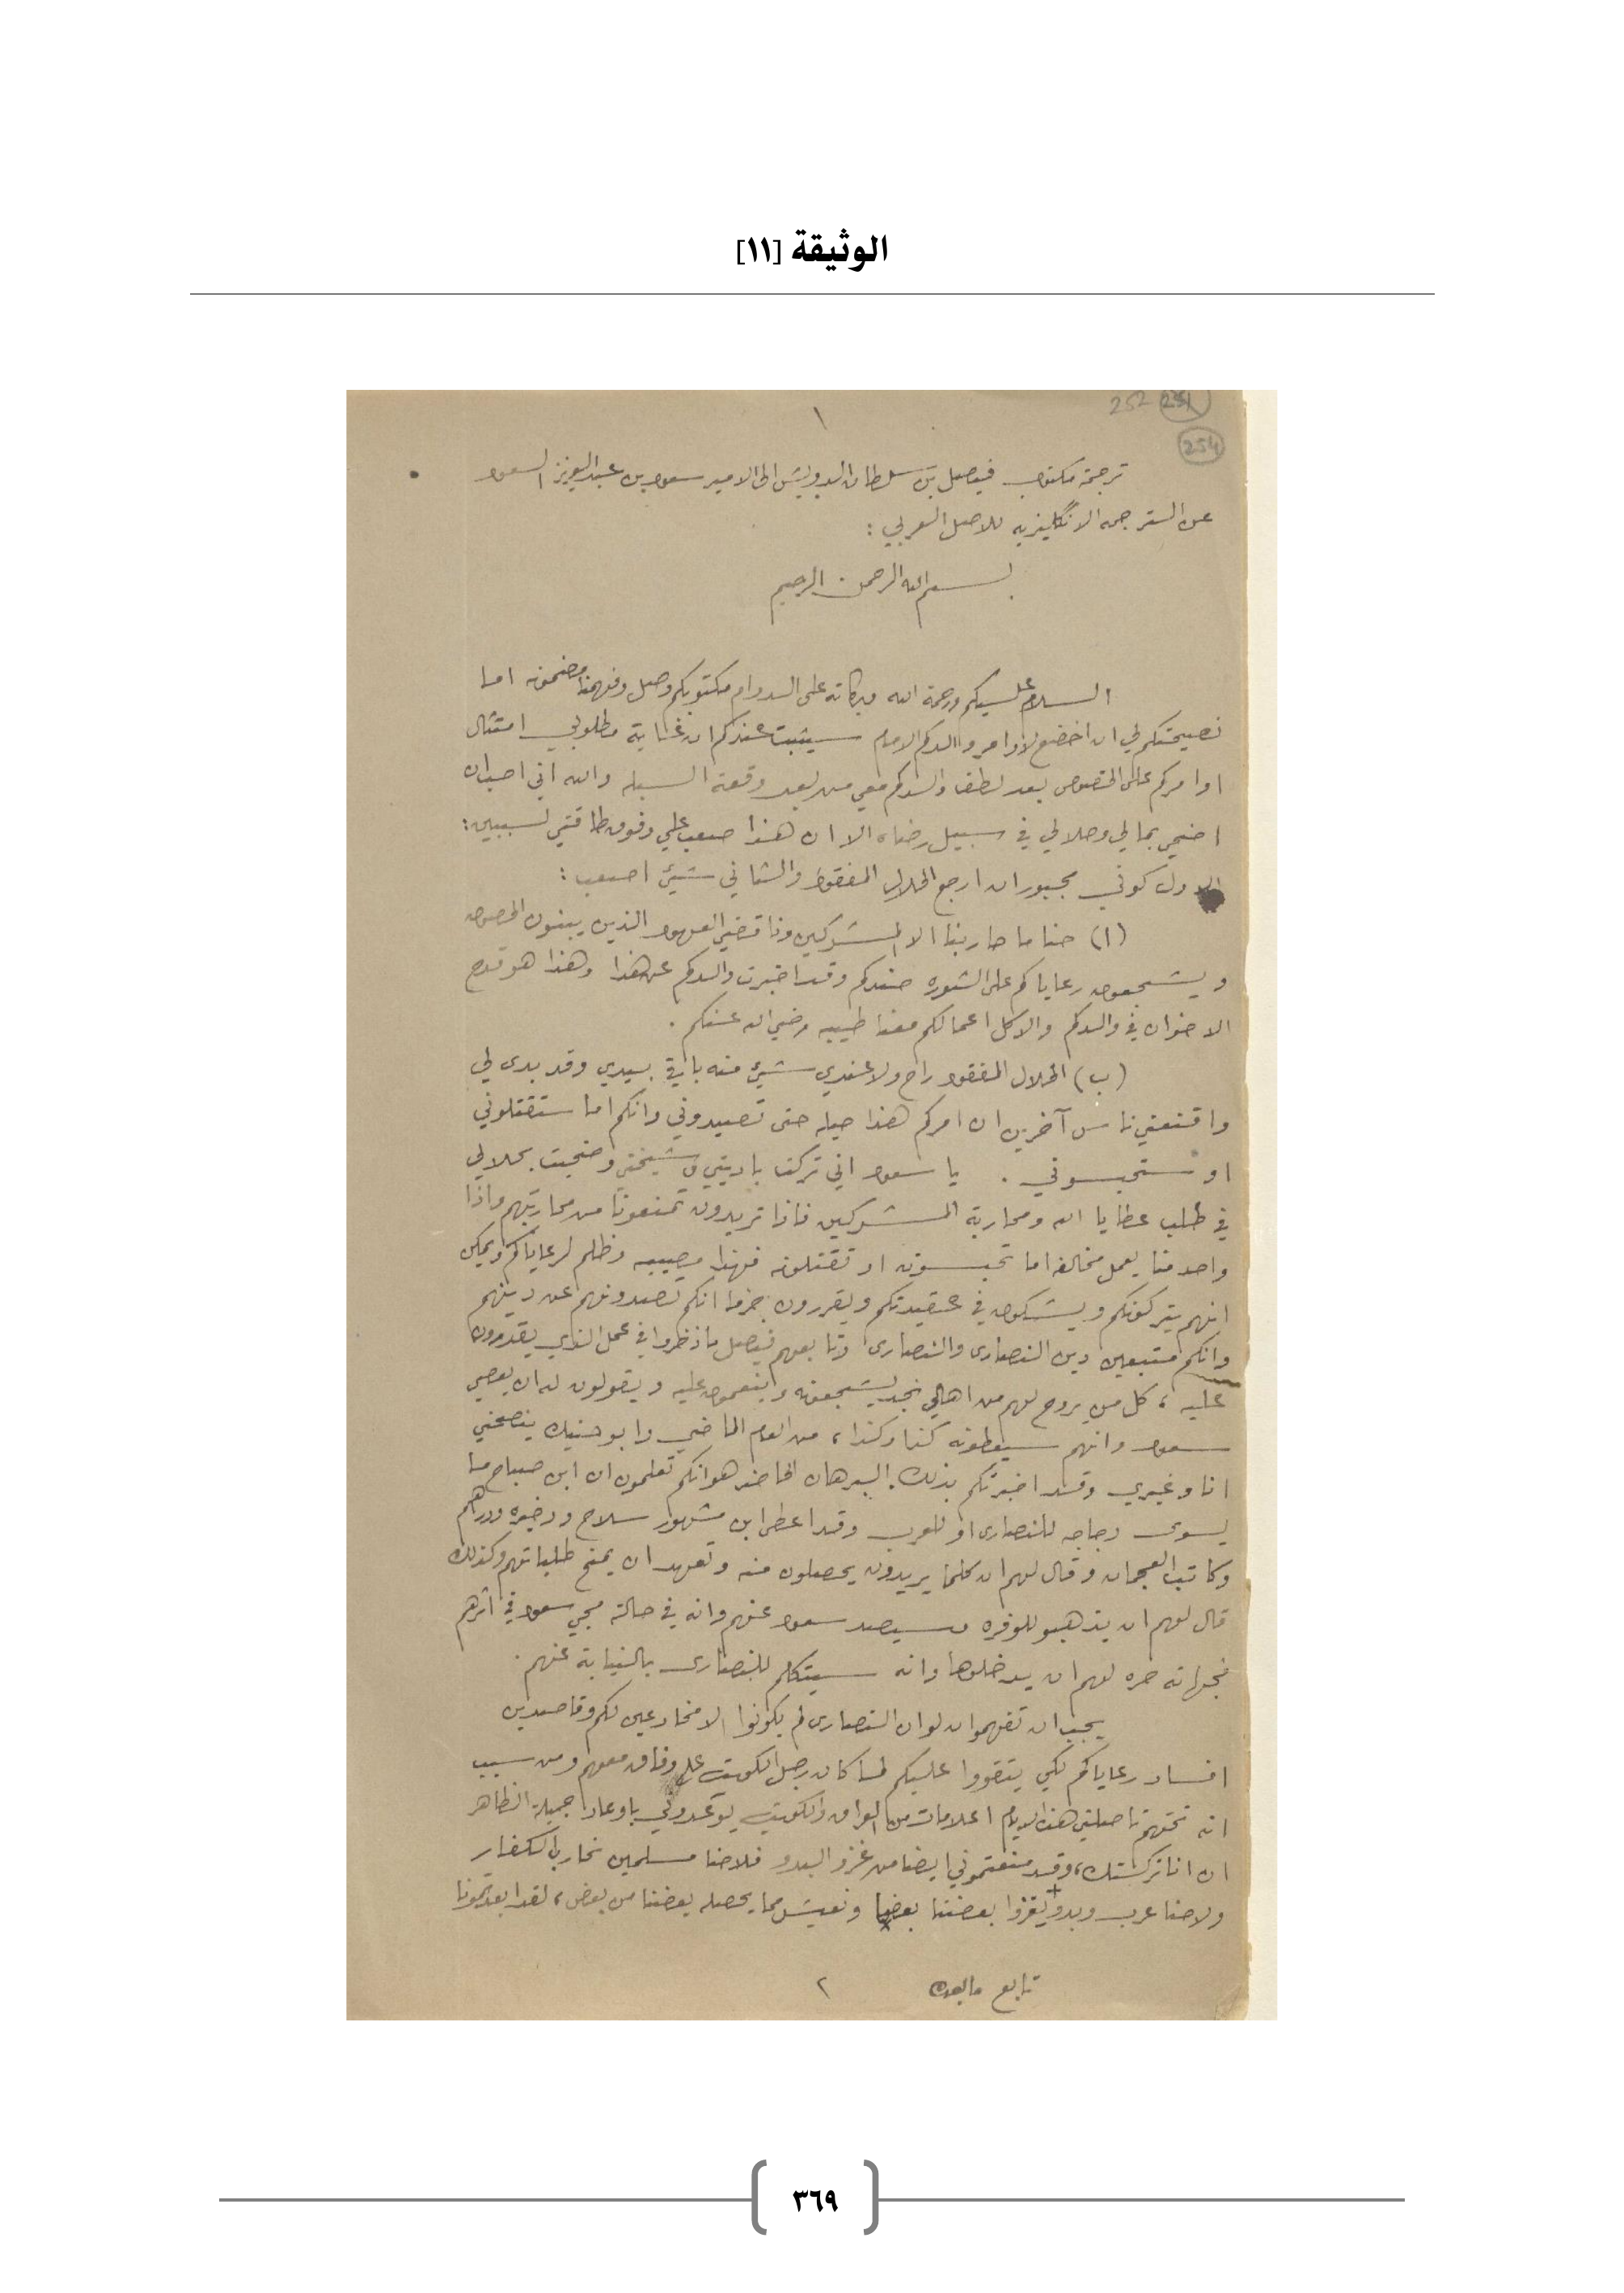 الوثيقة [١١]
252 251
١
254
ترجمة مكتوب فيصل بن سلطان الدويش الى الامير سعود بن عبد العزيز السعود
عن الترجمه الانگليزيه للاصل العربي :
بسم الله الرحمن الرحيم
السلام عليكم ورحمة الله وبركاته على الدوام مكتوبكم وصل وفهمنا مضمونه اما
نصيحتكم لي ان اخضع لأوامر والدكم الامام سيثبت عندكم ان غاية مطلوبي امتثال
اوامركم على الخصوص بعد لطف والدكم معي من بعد وقعة السبله والله اني احب ان
اضحي بمالي وحلالي في سبيل رضاه الا ان هذا صعب علي وفوق طاقتي لسببين :
الاول كوني مجبور ان ارجع الحلال المفقود والثاني شيئ اصعب :
(ا) حنا ما حاربنا الا المشركين وناقضي العهود الذين يبنون الحصون
ويشجعون رعاياكم على الثوره ضدكم وقد اخبرت والدكم عن هذا وهذا هو قدح
الاخوان في والدكم والا كل اعمالكم معنا طيبه رضي الله عنكم .
(ب) الحلال المفقود راح ولا عندي شيئ منه باقي بيدي وقد بدى لي
واقنعني ناس آخرين ان امركم هذا حيله حتى تصيدوني وانكم اما ستقتلوني
او ستحبسوني . يا سعود اني تركت باديتي و شيختي وضحيت بحلالي
في طلب عطايا الله ومحاربة المشركين فاذا تريدون تمنعونا من محاربتهم واذا
واحد منا يعمل مخالفه اما تحبسونه او تقتلونه فهذا مصيبه وظلم لرعاياكم ويمكن
انهم يتركونكم ويشكون في عقيدتكم ويقررون جزما انكم تصدونهم عن دينهم
وانكم متبعين دين النصارى والنصارى وتابعهم فيصل ما ذخروا في عمل الذي يقدرون
عليه ، كل من يروح لهم من اهالي نجد يشجعونه وينعمون عليه ويقولون له ان يعصي
سعود وانهم سيعطونه كذا وكذا ، من العام الماضي وابو حنيك ينصحني
انا وغيري وقد اخبرتكم بذلك . البرهان الحاضر هو انكم تعلمون ان ابن صباح ما
يسوى دجاجه للنصارى او للعرب وقد اعطى ابن مشهور سلاح وذخيره ودراهم
وكاتب العجمان وقال لهم ان كلما يريدون يحصلون منه وتعهد ان يمنح طلباتهم وكذلك
قال لهم ان يذهبو للوفره وسيصد سعود عنهم وانه في حالة مجي سعود في اثرهم
فجهاته حره لهم ان يدخلوها وانه سيتكلم للنصارى بالنيابة عنهم .
يجب ان تفهموا ان لو ان النصارى لم يكونوا الا مخادعين لكم وقاصدين
افساد رعاياكم لكي يتقووا عليكم لما كان رجل الكويت على وفاق معهم ومن سبب
انه تحتهم ناصلتي هذه الايام اعلامات من العراق والكويت يوعدوني باوعاد جميلة الظاهر
ان انا تركتك ، وقد منعتموني ايضا من غزو البدو فلا حنا مسلمين نحارب الكفار
ولا حنا عرب وبدو يغزوا بعضنا بعضا ونعيش مما يحصله بعضنا من بعض ، لقد ابعدتمونا
تابع ما بعده ٢
٣٦٩